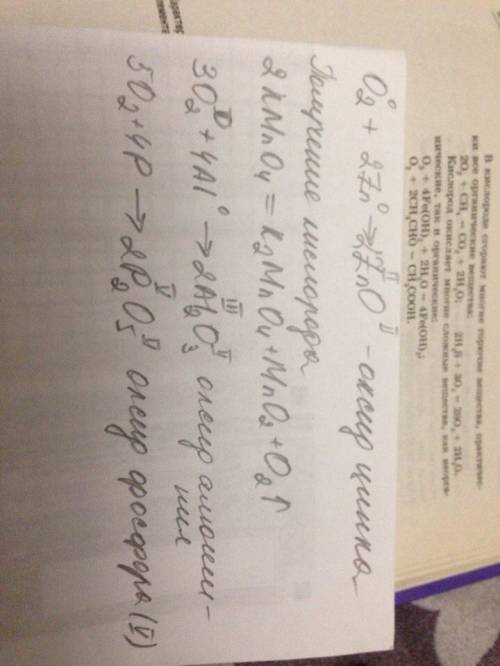 В кислороде сгорают многие горючие вещества, практичес-
ки все органические вещества:
2O₂ + CH₄ = CO₂ + 2H₂O; 2H₂S + 3O₂ = 2SO₂ + 2H₂O.
Кислород окисляет многие сложные вещества, как неорга-
нические, так и органические:
O₂ + 4Fe(OH)₂ + 2H₂O = 4Fe(OH)₃;
O₂ + 2CH₃CHO = CH₃COOH.
O₂⁰ + 2Zn⁰ → 2ZnO - оксид цинка
Получение кислорода
2KMnO₄ = K₂MnO₄ + MnO₂ + O₂↑
3O₂ + 4Al⁰ → 2Al₂O₃ оксид алюми-
ния
5O₂ + 4P → 2P₂O₅ оксид фосфора (V)